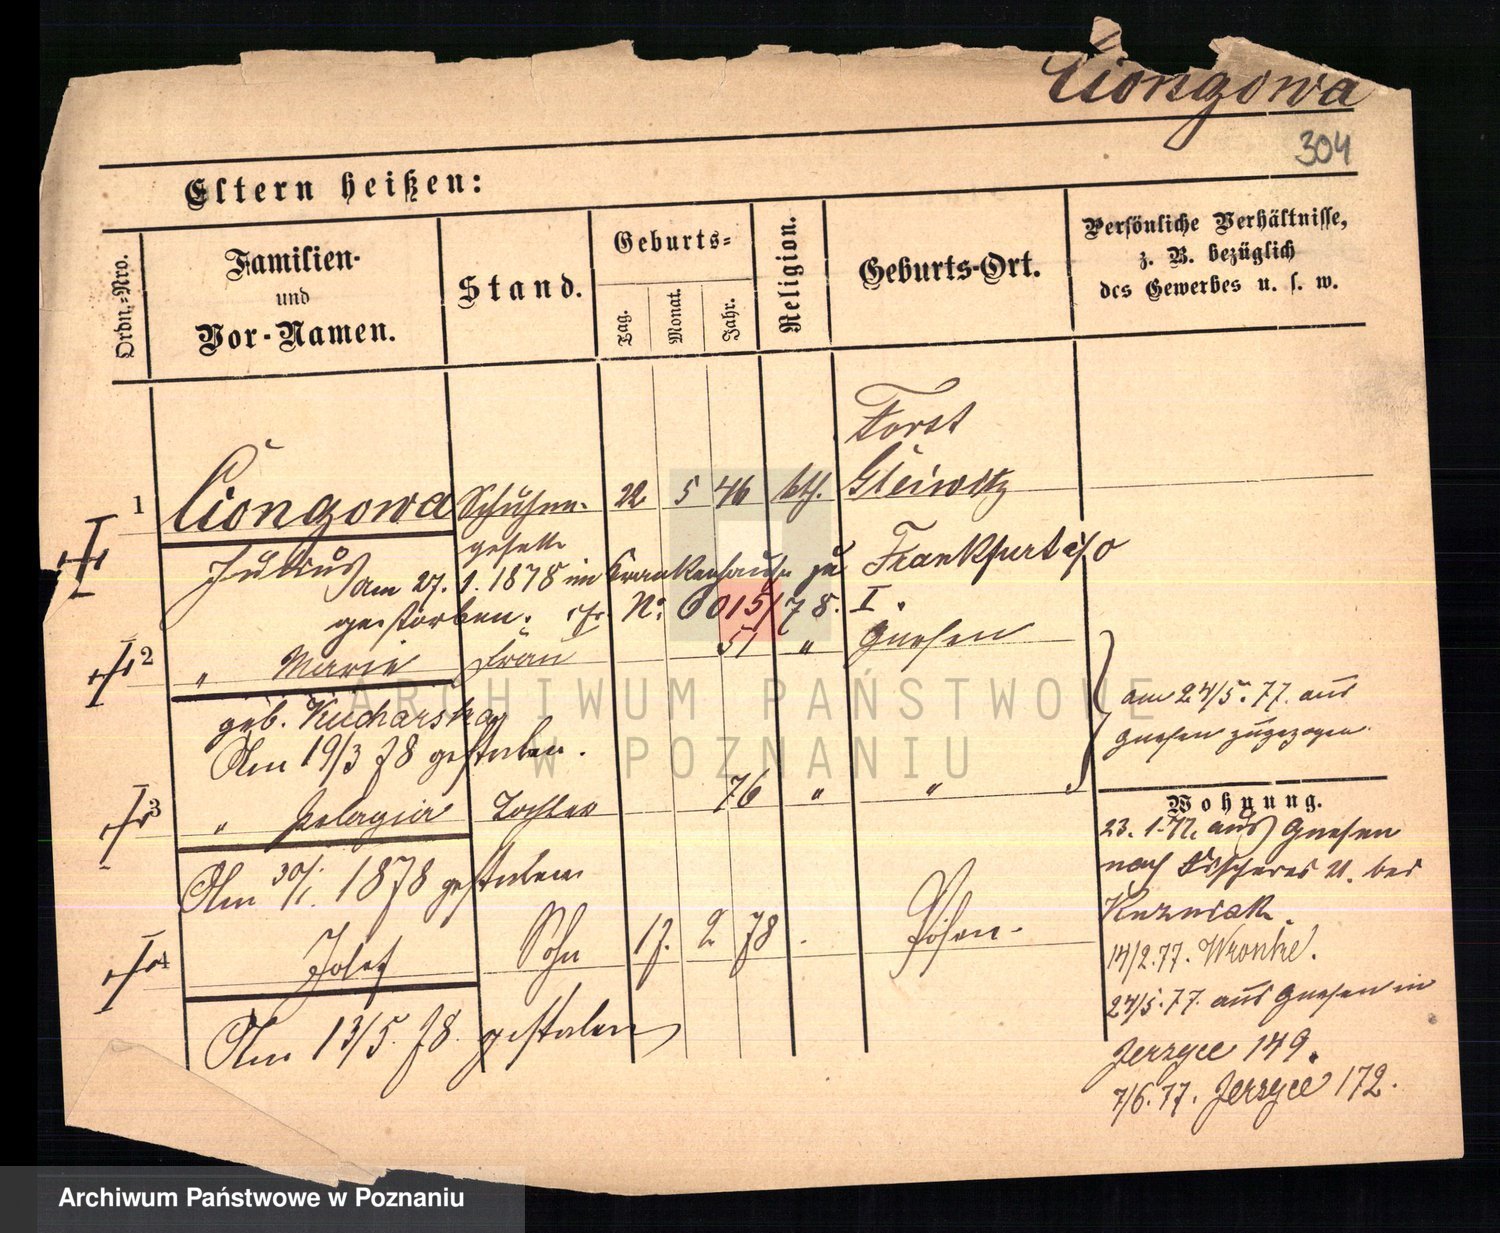 Ciongowa
304
Eltern heißen:
Ordn.-Nro.
Familien-
und
Vor-Namen.
Stand.
Geburts-
Tag.
Monat.
Jahr.
Religion.
Geburts-Ort.
Persönliche Verhältnisse,
z. B. bezüglich
des Gewerbes u. s. w.
Forst
1 Ciongowa Schuhm. 22 5 46 kth. Gleiwitz
geselle
Julius Frankfurt a/O
am 27. 1. 1878 im Krankenhause zu I.
gestorben. cfr. N: 6015/78.
2 " Marie Frau 51 " Gnesen
geb. Kucharska
Am 19/3 78 gestorben.
am 24/5. 77. aus
Gnesen zugezogen
3 " Pelagia Tochter 76 " " "
Am 30/1. 1878 gestorben
4 Josef Sohn 17. 2 78 . Posen.
Am 13/5. 78. gestorben
Wohnung.
23. 1. 77. aus Gnesen
nach Fischerei 21. bei
Kuzniak.
14/2. 77. Wronke.
24/5. 77. aus Gnesen in
Jerzyce 149.
7/6. 77. Jerzyce 172.
ARCHIWUM PAŃSTWOWE
W POZNANIU
Archiwum Państwowe w Poznaniu